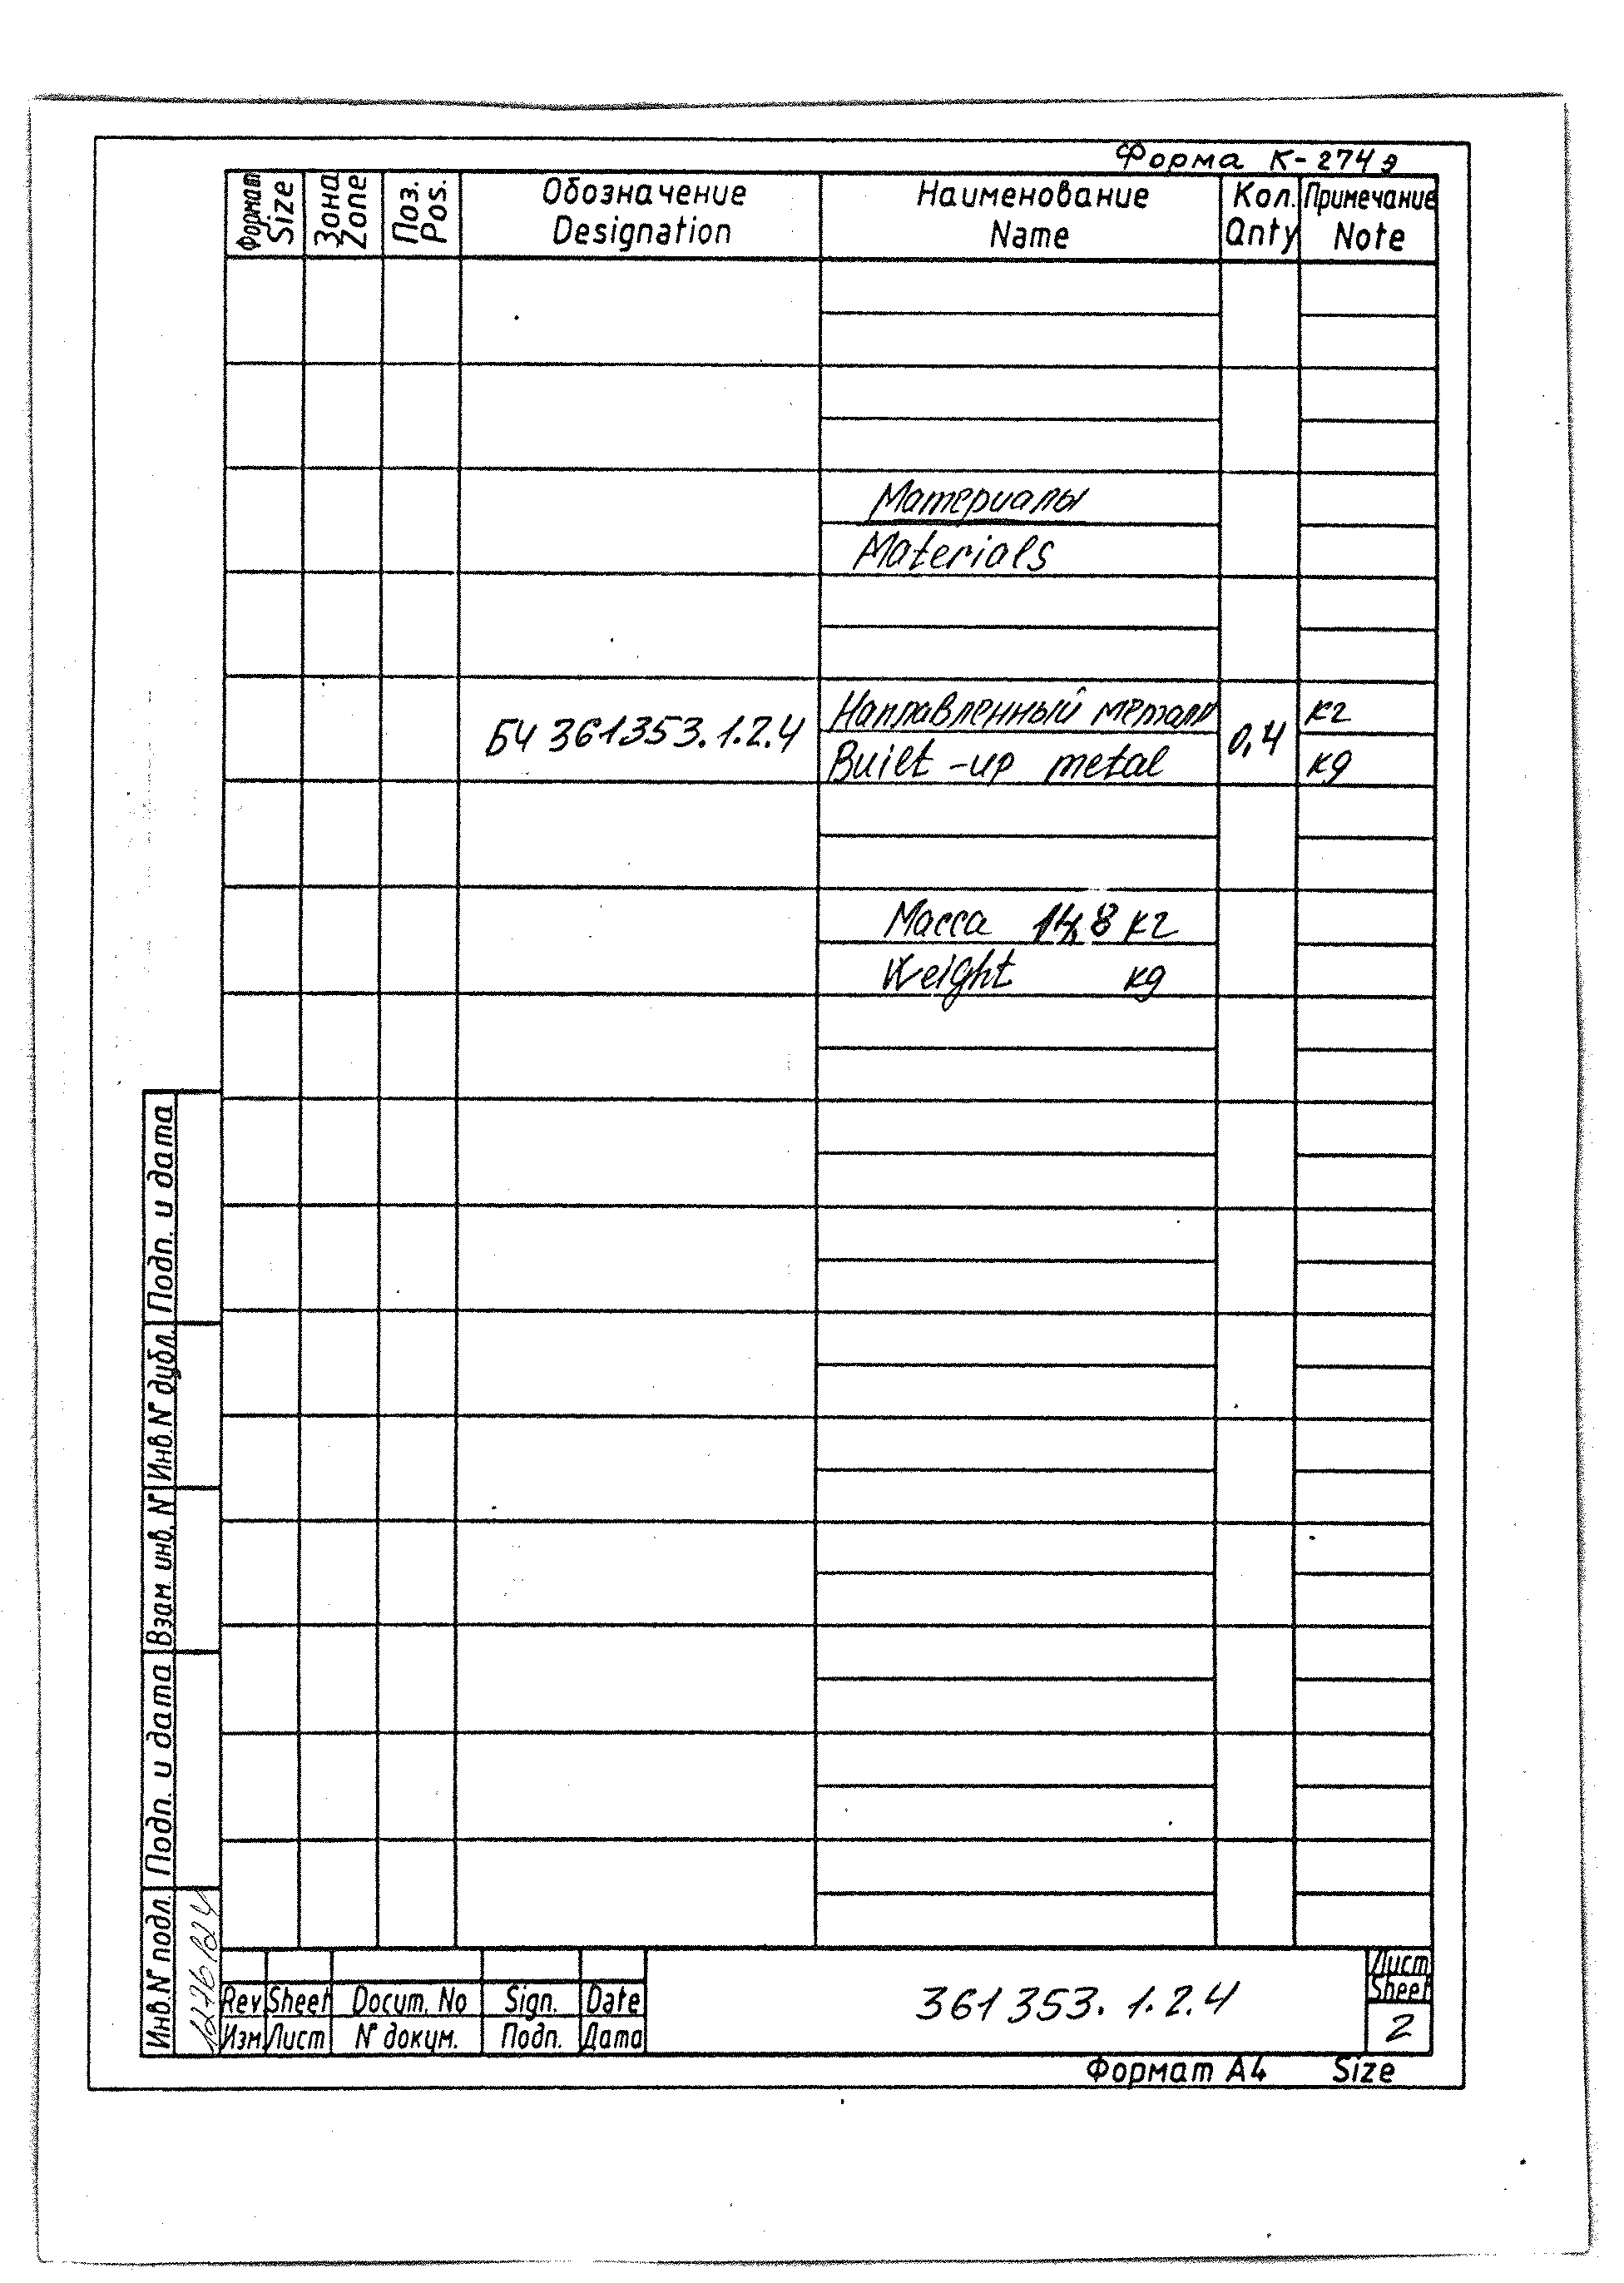 Форма К-274э
Формат
Size
Зона
Zone
Поз.
Pos.
Обозначение
Designation
Наименование
Name
Кол.
Qnty
Примечание
Note
Материалы
Materials
БЧ 361353.1.2.4
Наплавленный металл
Built-up metal
0,4
кг
kg
Масса 14,8 кг
Weight kg
Подп. и дата
Инв.№ дубл.
Взам. инв. №
Подп. и дата
Инв.№ подл.
Rev Sheet Docum. No Sign. Date
Изм Лист № докум. Подп. Дата
361353.1.2.4
Лист
Sheet
2
Формат А4 Size